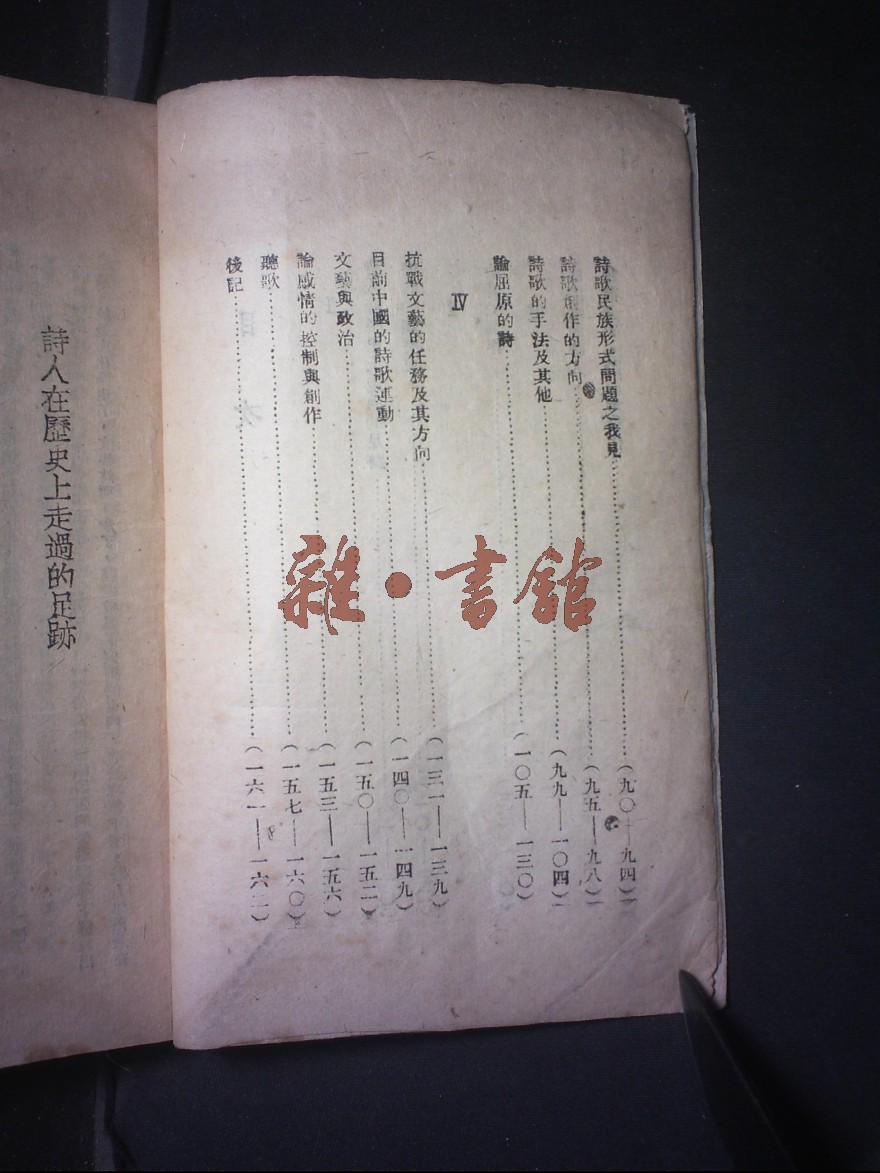 詩歌民族形式問題之我見……(九〇—九四)
詩歌創作的方向……(九五—九八)
詩歌的手法及其他……(九九—一〇四)
論屈原的詩……(一〇五—一三〇)
Ⅳ
抗戰文藝的任務及其方向……(一三一—一三九)
目前中國的詩歌運動……(一四〇—一四九)
文藝與政治……(一五〇—一五二)
論感情的控制與創作……(一五三—一五六)
聽歌……(一五七—一六〇)
後記……(一六一—一六二)
詩人在歷史上走過的足跡
雜·書館